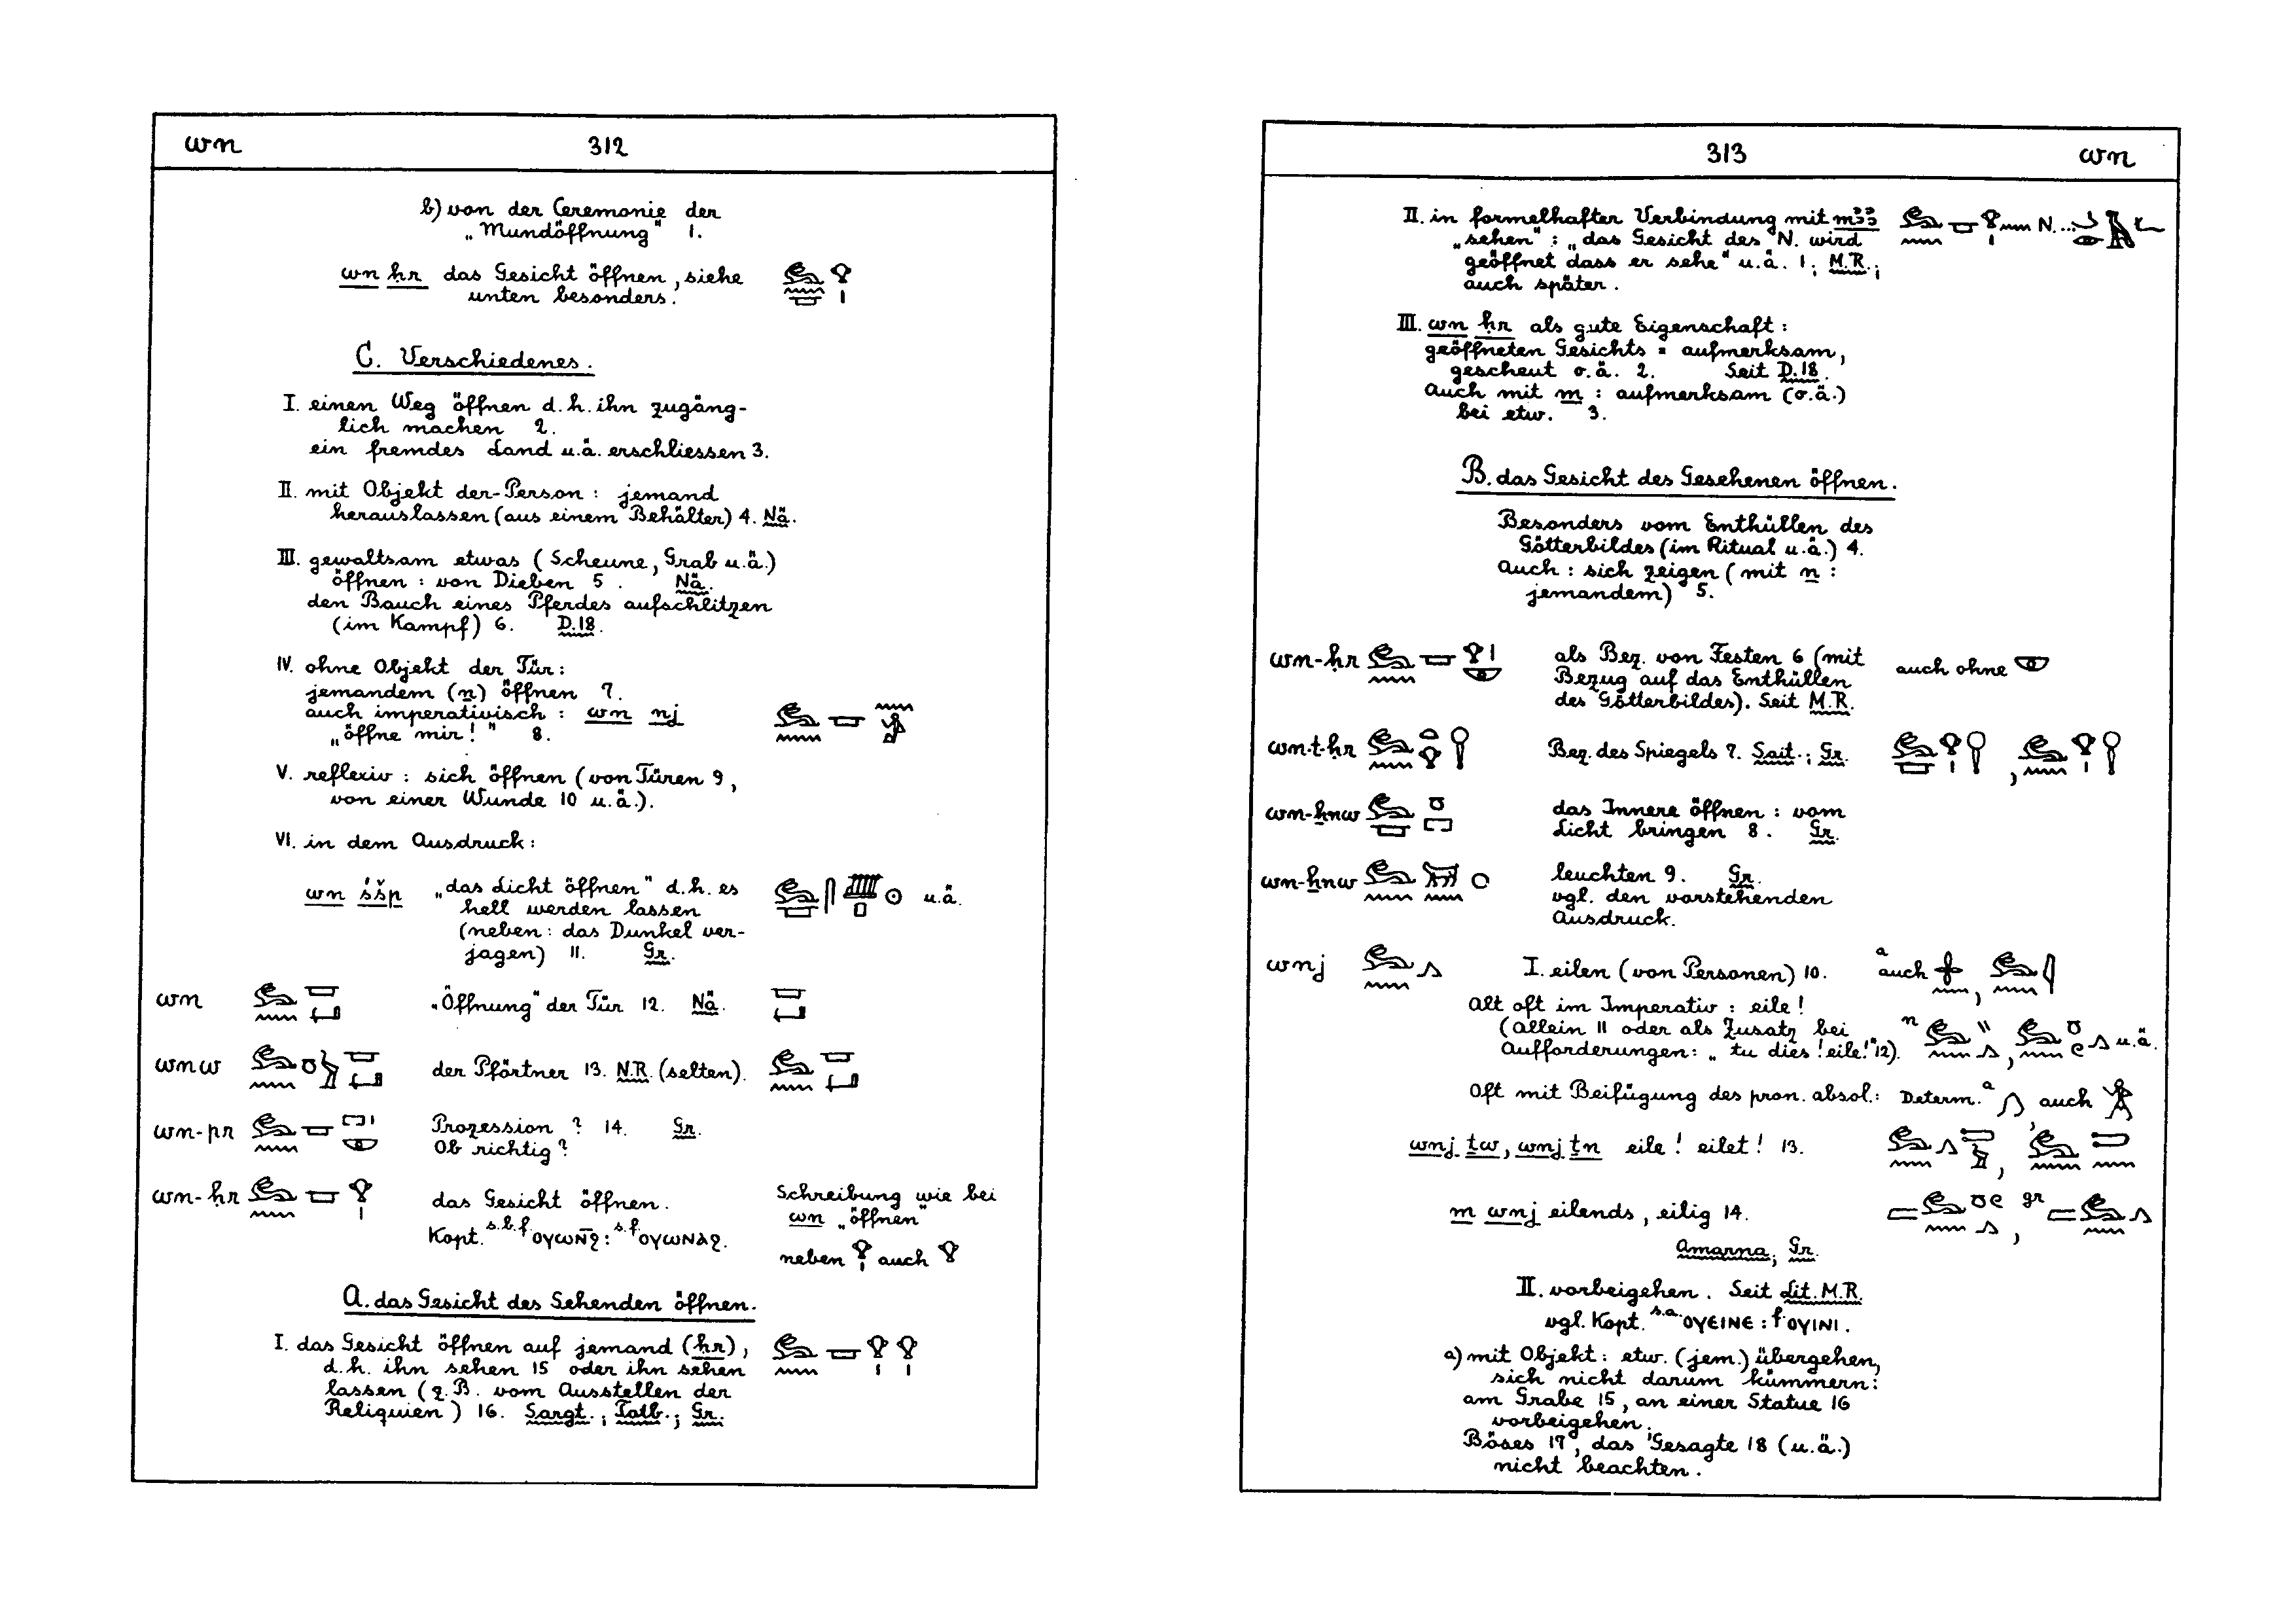 wn 312
b) von der Ceremonie der
„Mundöffnung" 1.
wn ḥr das Gesicht öffnen, siehe
unten besonders.
C. Verschiedenes.
I. einen Weg öffnen d.h. ihn zugäng-
lich machen 2.
ein fremdes Land u.ä. erschliessen 3.
II. mit Objekt der Person: jemand
herauslassen (aus einem Behälter) 4. Nä.
III. gewaltsam etwas (Scheune, Grab u.ä.)
öffnen: von Dieben 5. Nä.
den Bauch eines Pferdes aufschlitzen
(im Kampf) 6. D.18.
IV. ohne Objekt der Tür:
jemandem (n) öffnen 7.
auch imperativisch: wn nj
„öffne mir!" 8.
V. reflexiv: sich öffnen (von Türen 9,
von einer Wunde 10 u.ä.).
VI. in dem Ausdruck:
wn śšp „das Licht öffnen" d.h. es u.ä.
hell werden lassen
(neben: das Dunkel ver-
jagen) 11. Gr.
wn „Öffnung" der Tür 12. Nä.
wnw der Pförtner 13. N.R. (selten).
wn-pr Prozession? 14. Gr.
Ob richtig?
wn-ḥr das Gesicht öffnen. Schreibung wie bei
wn „öffnen"
Kopt. s.b.f. ⲟⲩⲱⲛ̅ϩ: s.f. ⲟⲩⲱⲛⲁϩ.
neben auch
A. das Gesicht des Sehenden öffnen.
I. das Gesicht öffnen auf jemand (ḥr),
d.h. ihn sehen 15 oder ihn sehen
lassen (z.B. vom Ausstellen der
Reliquien) 16. Sargt.; Totb.; Gr.
313 wn
II. in formelhafter Verbindung mit mꜣꜣ N...
„sehen": „das Gesicht des N. wird
geöffnet dass er sehe" u.ä. 1; M.R.;
auch später.
III. wn ḥr als gute Eigenschaft:
geöffneten Gesichts = aufmerksam,
gescheut o.ä. 2. Seit D.18.
Auch mit m: aufmerksam (o.ä.)
bei etw. 3.
B. das Gesicht des Gesehenen öffnen.
Besonders vom Enthüllen des
Götterbildes (im Ritual u.ä.) 4.
Auch: sich zeigen (mit n:
jemandem) 5.
wn-ḥr als Bez. von Festen 6 (mit auch ohne
Bezug auf das Enthüllen
des Götterbildes). Seit M.R.
wn-t-ḥr Bez. des Spiegels 7. Sait.; Gr.
wn-ẖnw das Innere öffnen: vom
Licht bringen 8. Gr.
wn-ẖnw leuchten 9. Gr.
vgl. den vorstehenden
Ausdruck.
wnj I. eilen (von Personen) 10. a auch
Alt oft im Imperativ: eile!
(allein 11 oder als Zusatz bei n u.ä.
Aufforderungen: „tu dies! eile!" 12).
Oft mit Beifügung des pron. absol.: Determ. a, auch
wnj ṯw, wnj ṯn eile! eilet! 13.
m wnj eilends, eilig 14. gr
Amarna; Gr.
II. vorbeigehen. Seit Lit. M.R.
vgl. Kopt. s.a. ⲟⲩⲉⲓⲛⲉ: f. ⲟⲩⲓⲛⲓ.
a) mit Objekt: etw. (jem.) übergehen,
sich nicht darum kümmern:
am Grabe 15, an einer Statue 16
vorbeigehen.
Böses 17, das Gesagte 18 (u.ä.)
nicht beachten.